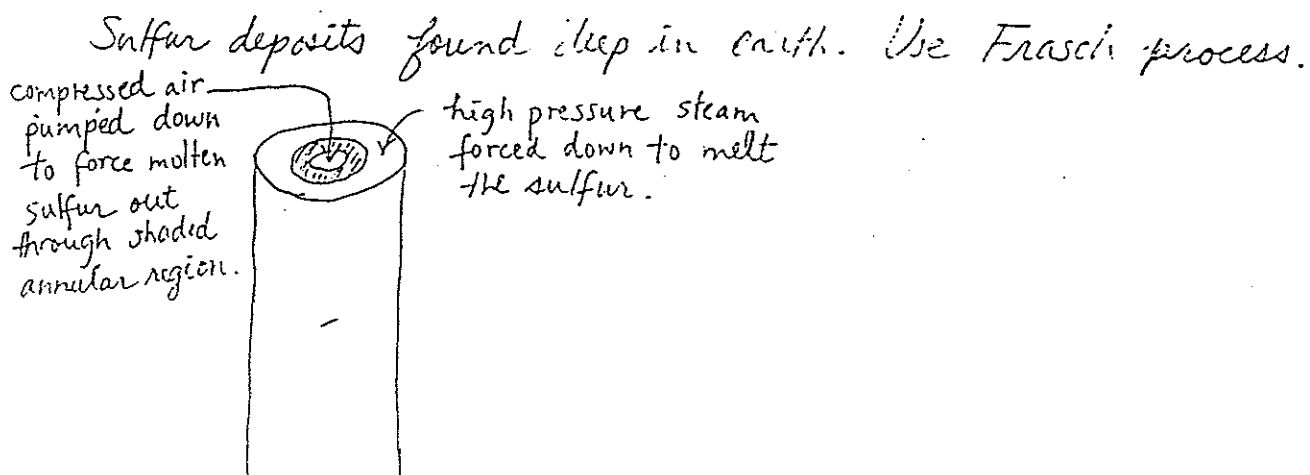 Sulfur deposits found deep in earth. Use Frasch process.
compressed air
pumped down
to force molten
sulfur out
through shaded
annular region.
high pressure steam
forced down to melt
the sulfur.